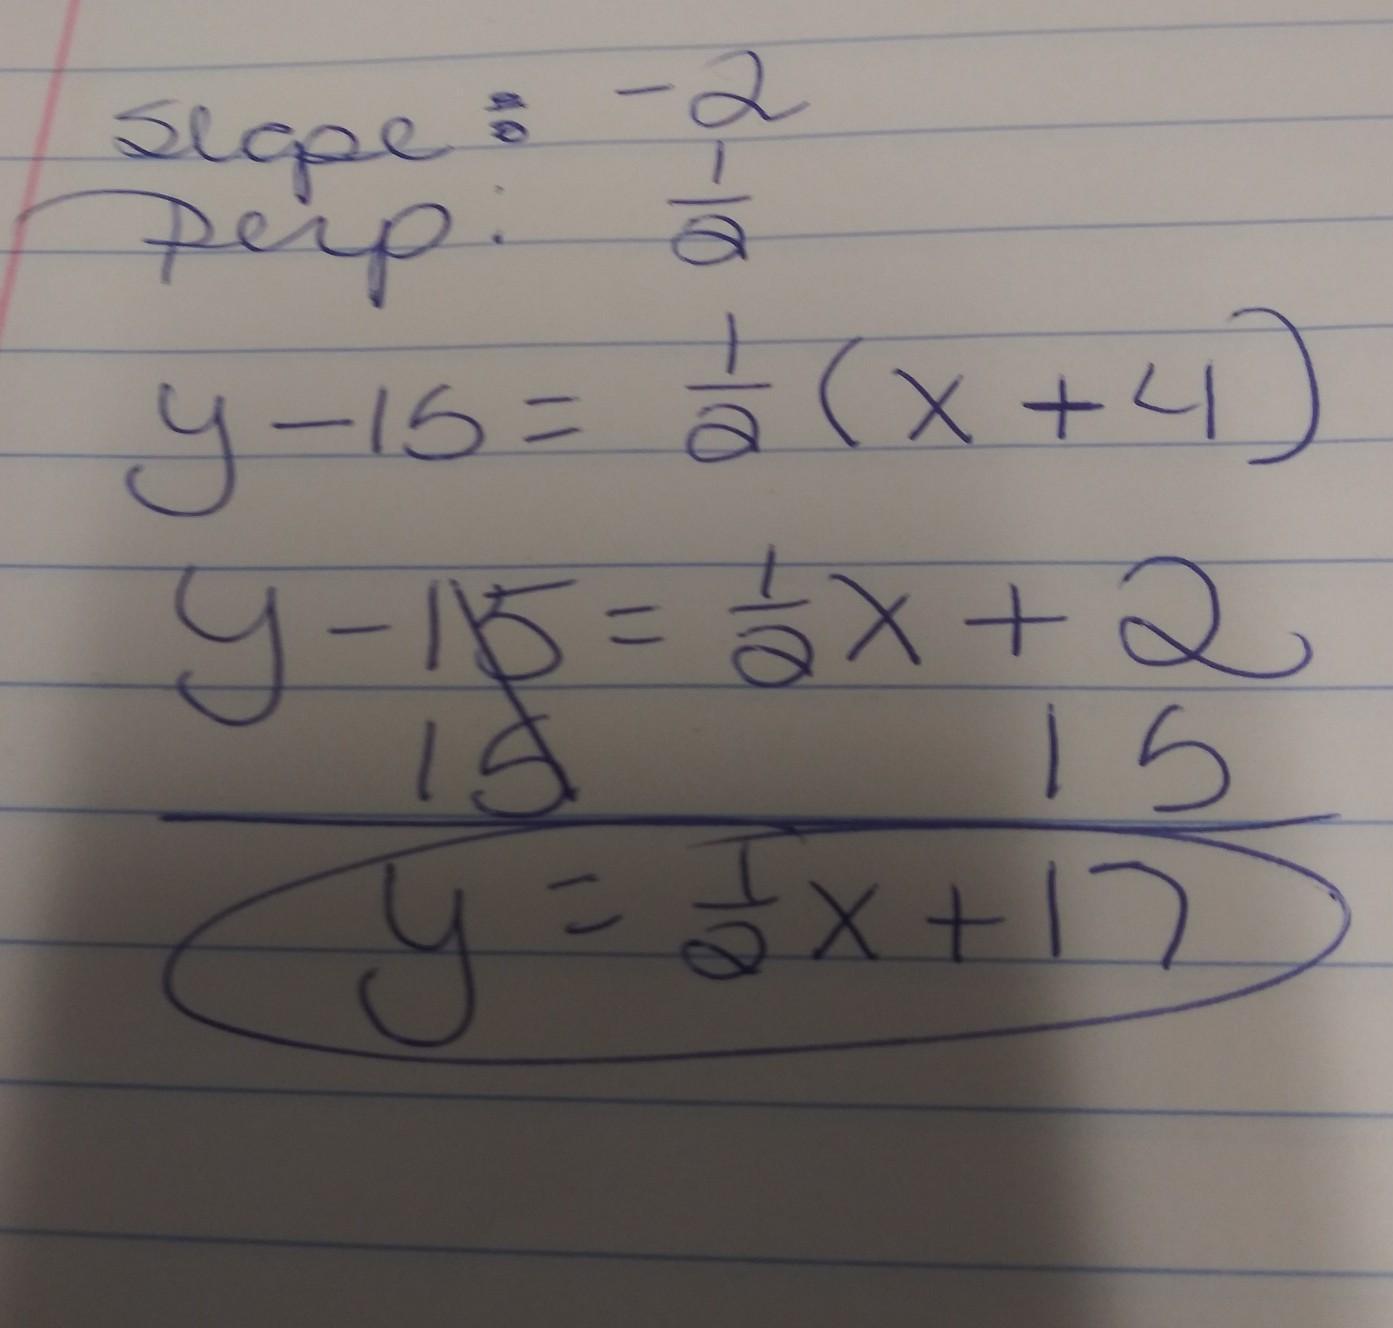 Slope: -2
Perp: 1/2
y - 15 = 1/2 (x + 4)
y - 15 = 1/2 x + 2
15 15
y = 1/2 x + 17